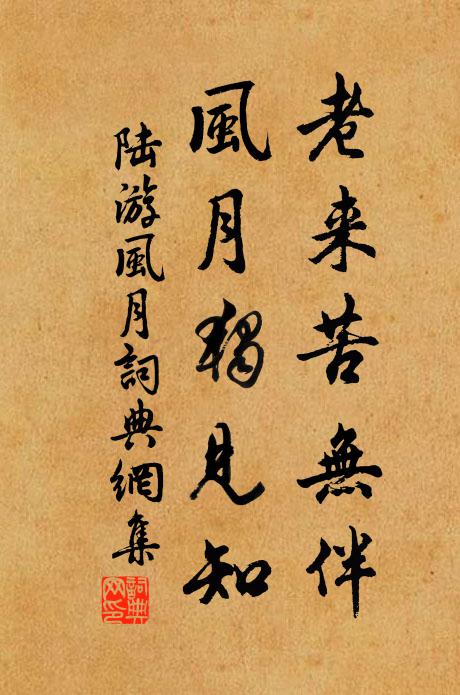 老来苦無伴
風月獨見知
陆游風月詞典網集
詞典网印